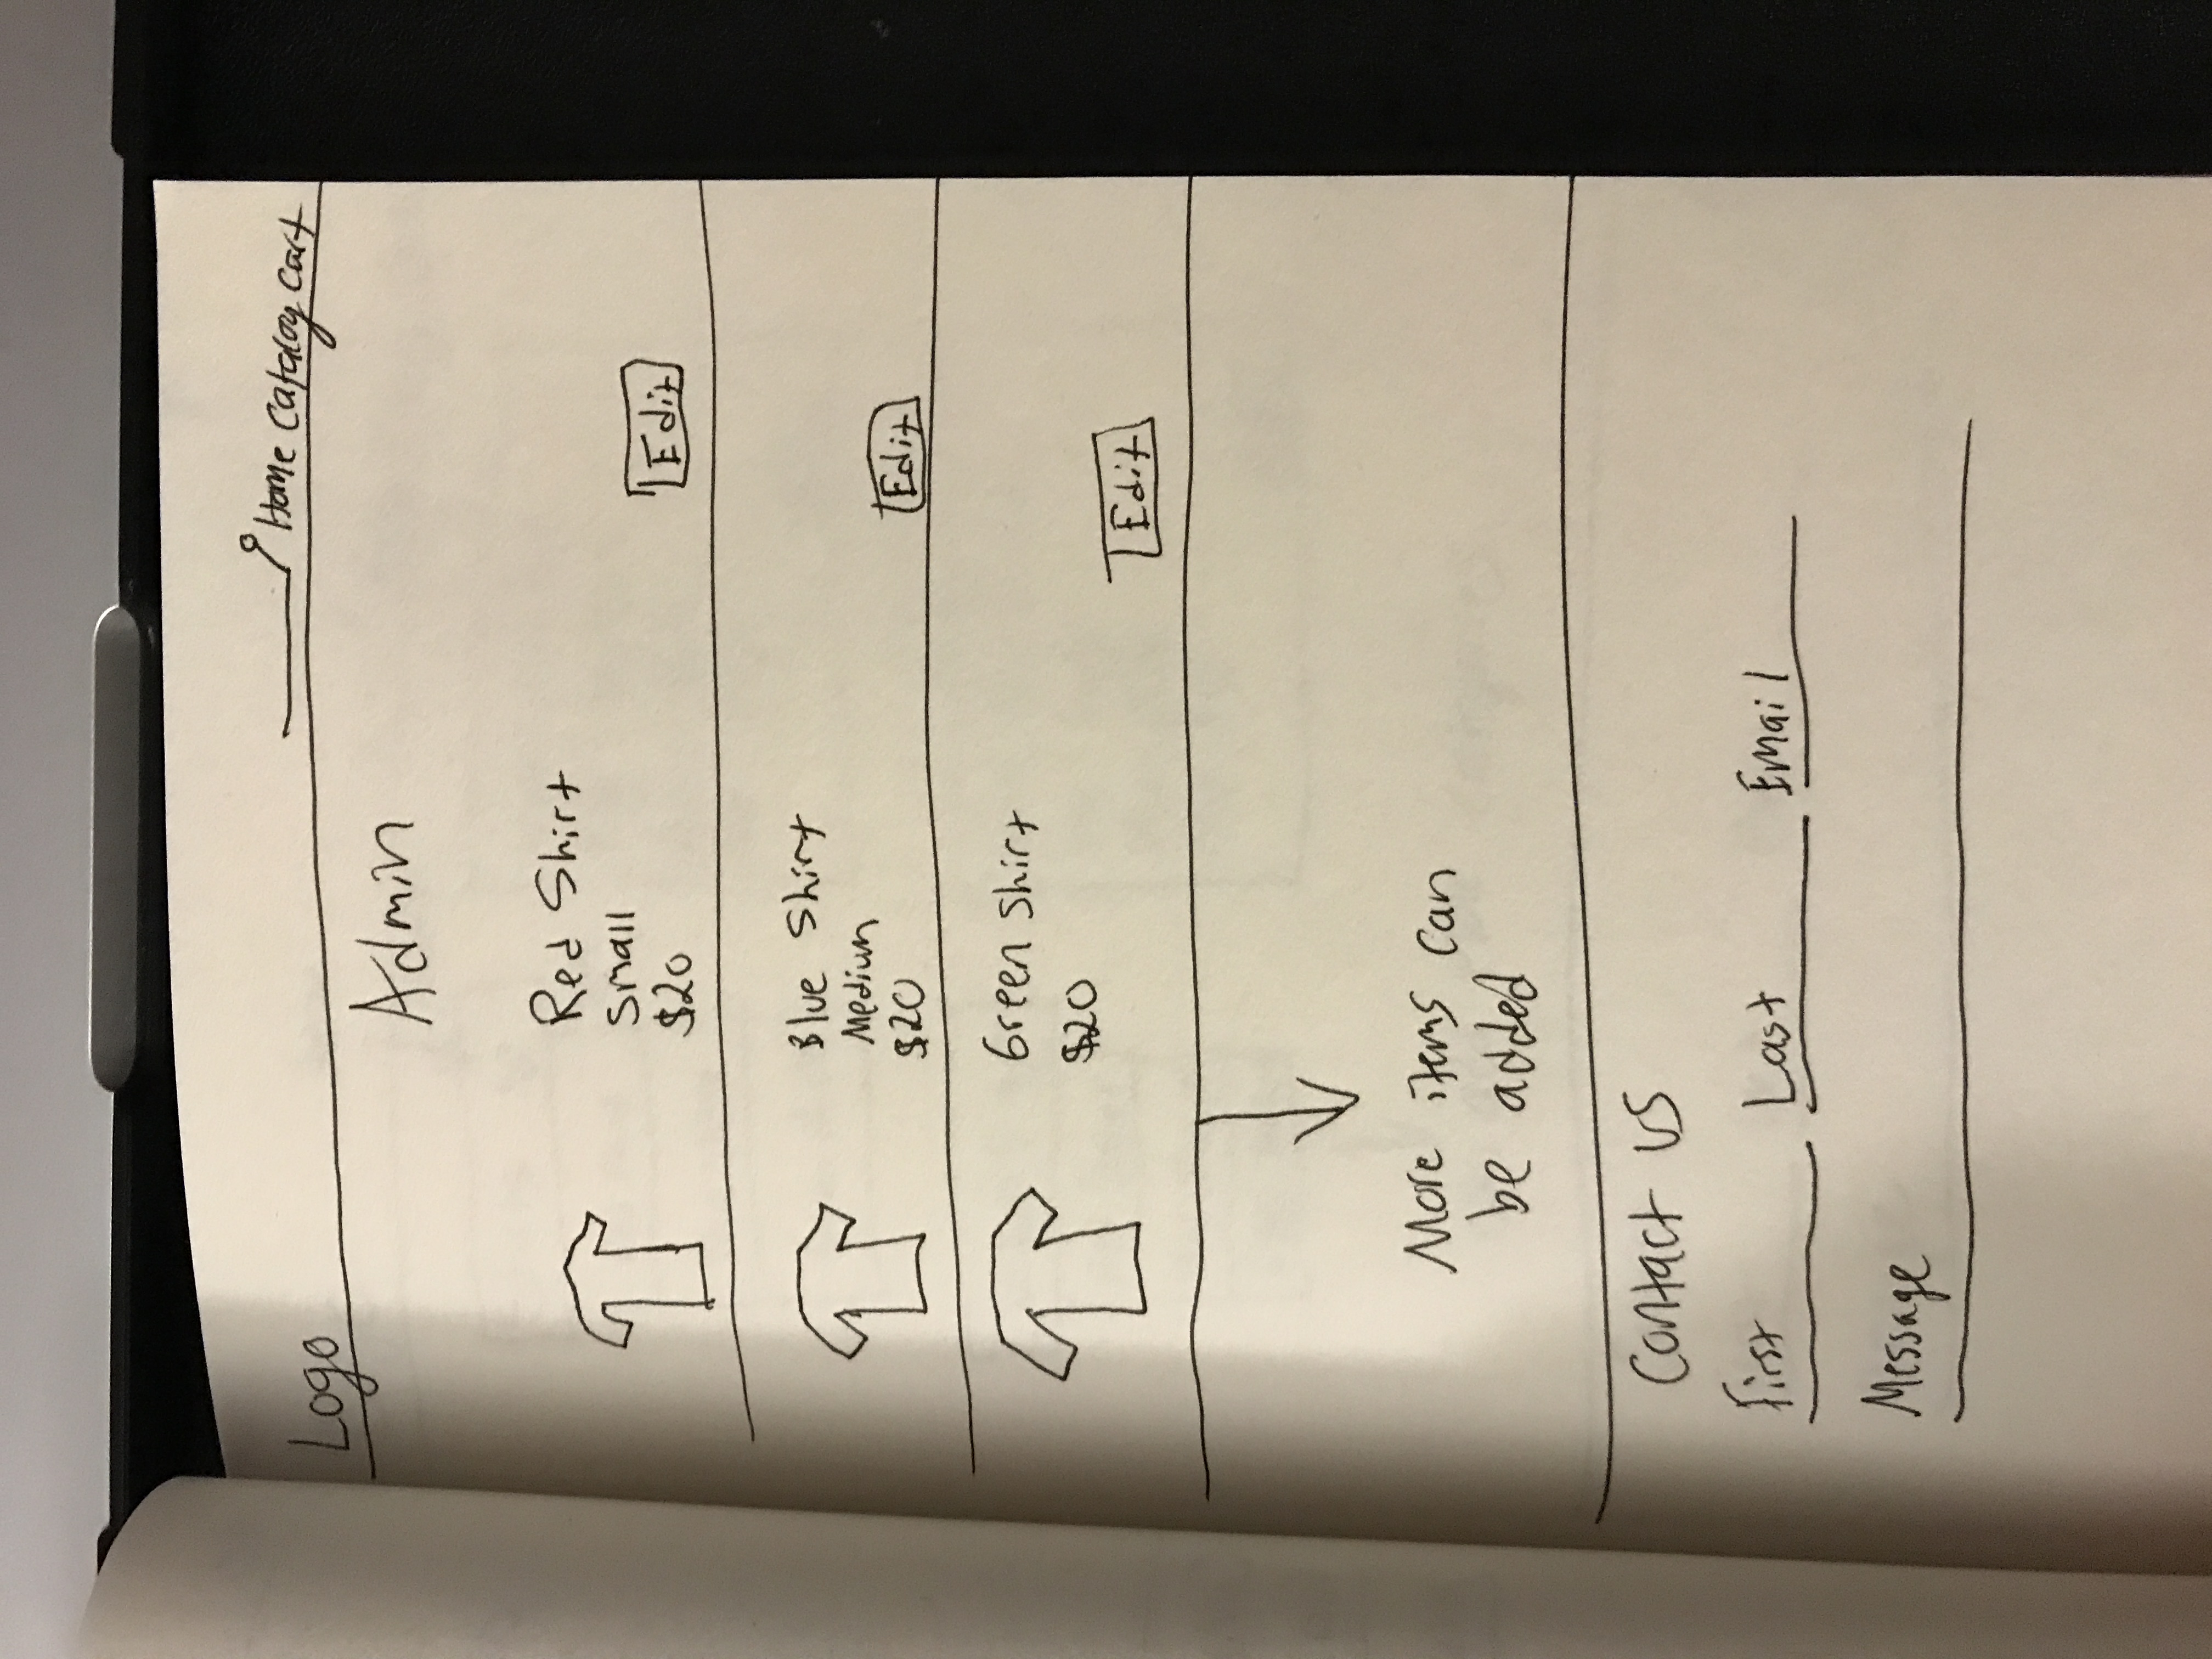 Logo
Home Catalog Cart
Admin
Red Shirt
Small
$20
Edit
Blue Shirt
Medium
$20
Edit
Green Shirt
$20
Edit
More items can
be added
Contact us
First Last Email
Message